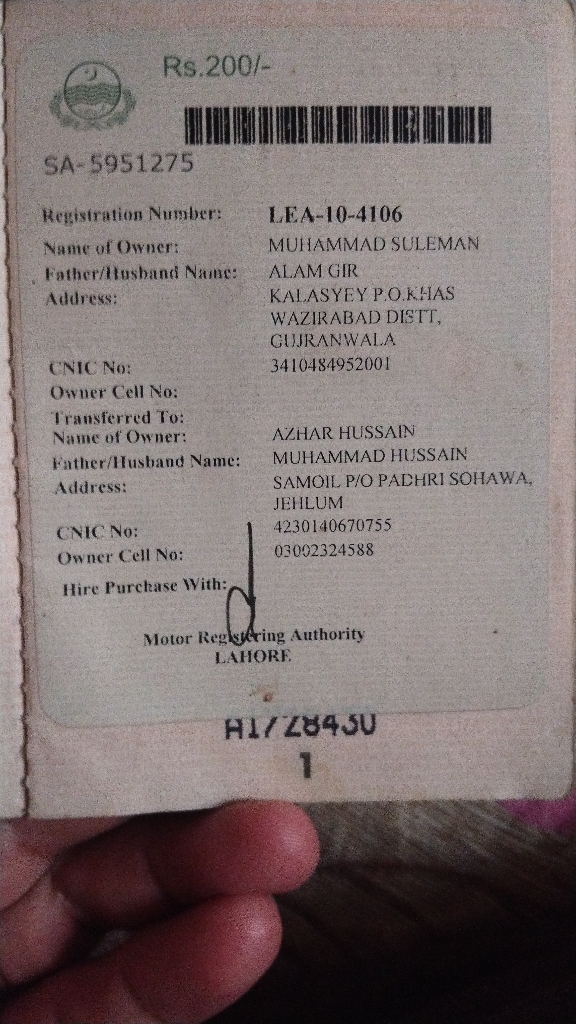 Rs.200/-
SA-5951275
Registration Number: LEA-10-4106
Name of Owner: MUHAMMAD SULEMAN
Father/Husband Name: ALAM GIR
Address: KALASYEY P.O.KHAS
WAZIRABAD DISTT,
GUJRANWALA
CNIC No: 3410484952001
Owner Cell No:
Transferred To:
Name of Owner: AZHAR HUSSAIN
Father/Husband Name: MUHAMMAD HUSSAIN
Address: SAMOIL P/O PADHRI SOHAWA,
JEHLUM
CNIC No: 4230140670755
Owner Cell No: 03002324588
Hire Purchase With:
Motor Registering Authority
LAHORE
1